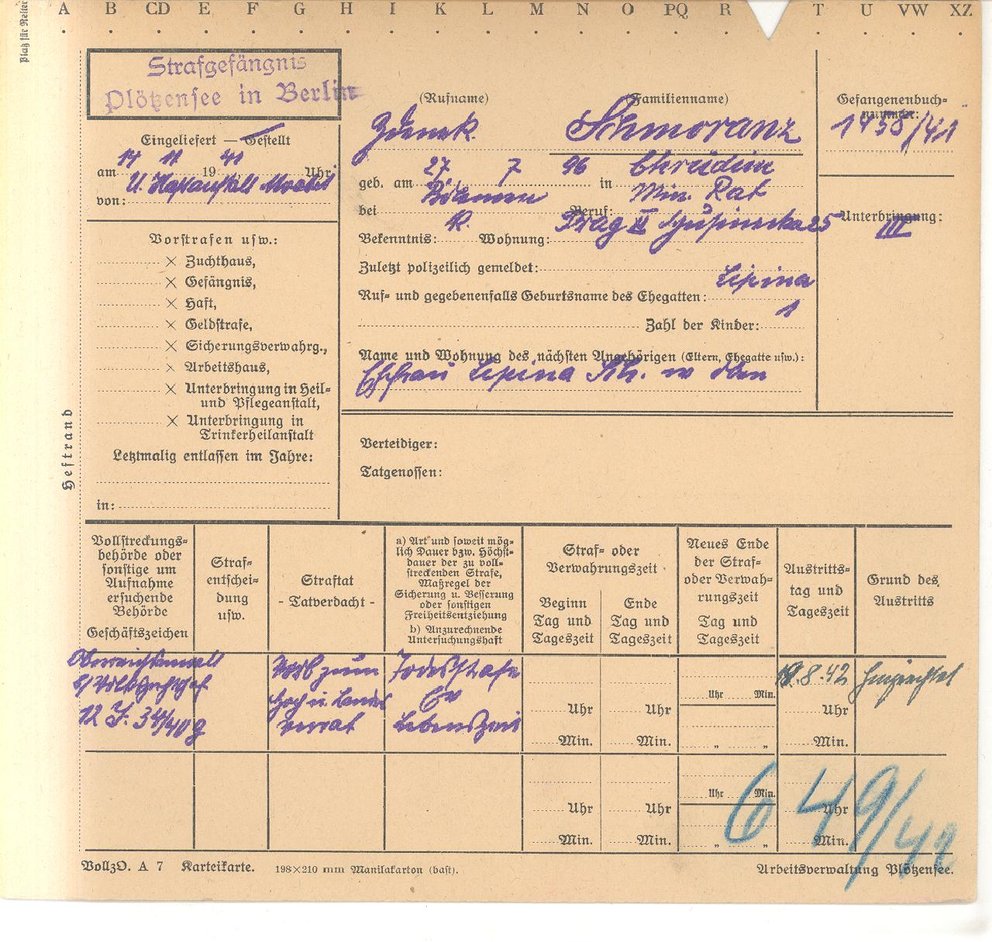 Platz für Reiter
A B CD E F G H I K L M N O PQ R T U VW XZ
Strafgefängnis
Plötzensee in Berlin
Eingeliefert — Gestellt
am 14 11 19 41 Uhr
von: U. Haftanstalt Moabit
Vorstrafen usw.:
× Zuchthaus,
× Gefängnis,
× Haft,
× Geldstrafe,
× Sicherungsverwahrg.,
× Arbeitshaus,
× Unterbringung in Heil-
und Pflegeanstalt,
× Unterbringung in
Trinkerheilanstalt
Letztmalig entlassen im Jahre:
in:
Heftrand
(Rufname) (Familienname)
Zdenek Schmoranz
geb. am 27 7 96 in Chrudim
bei Böhmen Beruf: Min. Rat
Bekenntnis: R. Wohnung: Prag 25
Zuletzt polizeilich gemeldet:
Ruf- und gegebenenfalls Geburtsname des Ehegatten: Lipina
Zahl der Kinder: 1
Name und Wohnung des nächsten Angehörigen (Eltern, Ehegatte usw.):
Ehefrau Lipina Sch. w oben
Gefangenenbuch-
nummer:
1438/41
Unterbringung:
III
Verteidiger:
Tatgenossen:
Vollstreckungs-
behörde oder
sonstige um
Aufnahme
ersuchende
Behörde
Geschäftszeichen
Straf-
entschei-
dung
usw.
Straftat
- Tatverdacht -
a) Art und soweit mög-
lich Dauer bzw. Höchst-
dauer der zu voll-
streckenden Strafe,
Maßregel der
Sicherung u. Besserung
oder sonstigen
Freiheitsentziehung
b) Anzurechnende
Untersuchungshaft
Straf- oder
Verwahrungszeit
Beginn
Tag und
Tageszeit
Ende
Tag und
Tageszeit
Neues Ende
der Straf-
oder Verwah-
rungszeit
Tag und
Tageszeit
Austritts-
tag und
Tageszeit
Grund des
Austritts
Oberreichsanwalt
b/ Volksgerichtshof
12 J. 34/40 g
Vorb zum
Hoch u. Landes
verrat
Todesstrafe
Ev
Lebenszeit
Uhr
Min.
Uhr
Min.
Uhr Min.
" "
19.8.42
Uhr
Min.
hingerichtet
Uhr
Min.
Uhr
Min.
Uhr Min.
" "
Uhr
Min.
649/42
VollzO. A 7 Karteikarte. 198×210 mm Manilakarton (bast).
Arbeitsverwaltung Plötzensee.